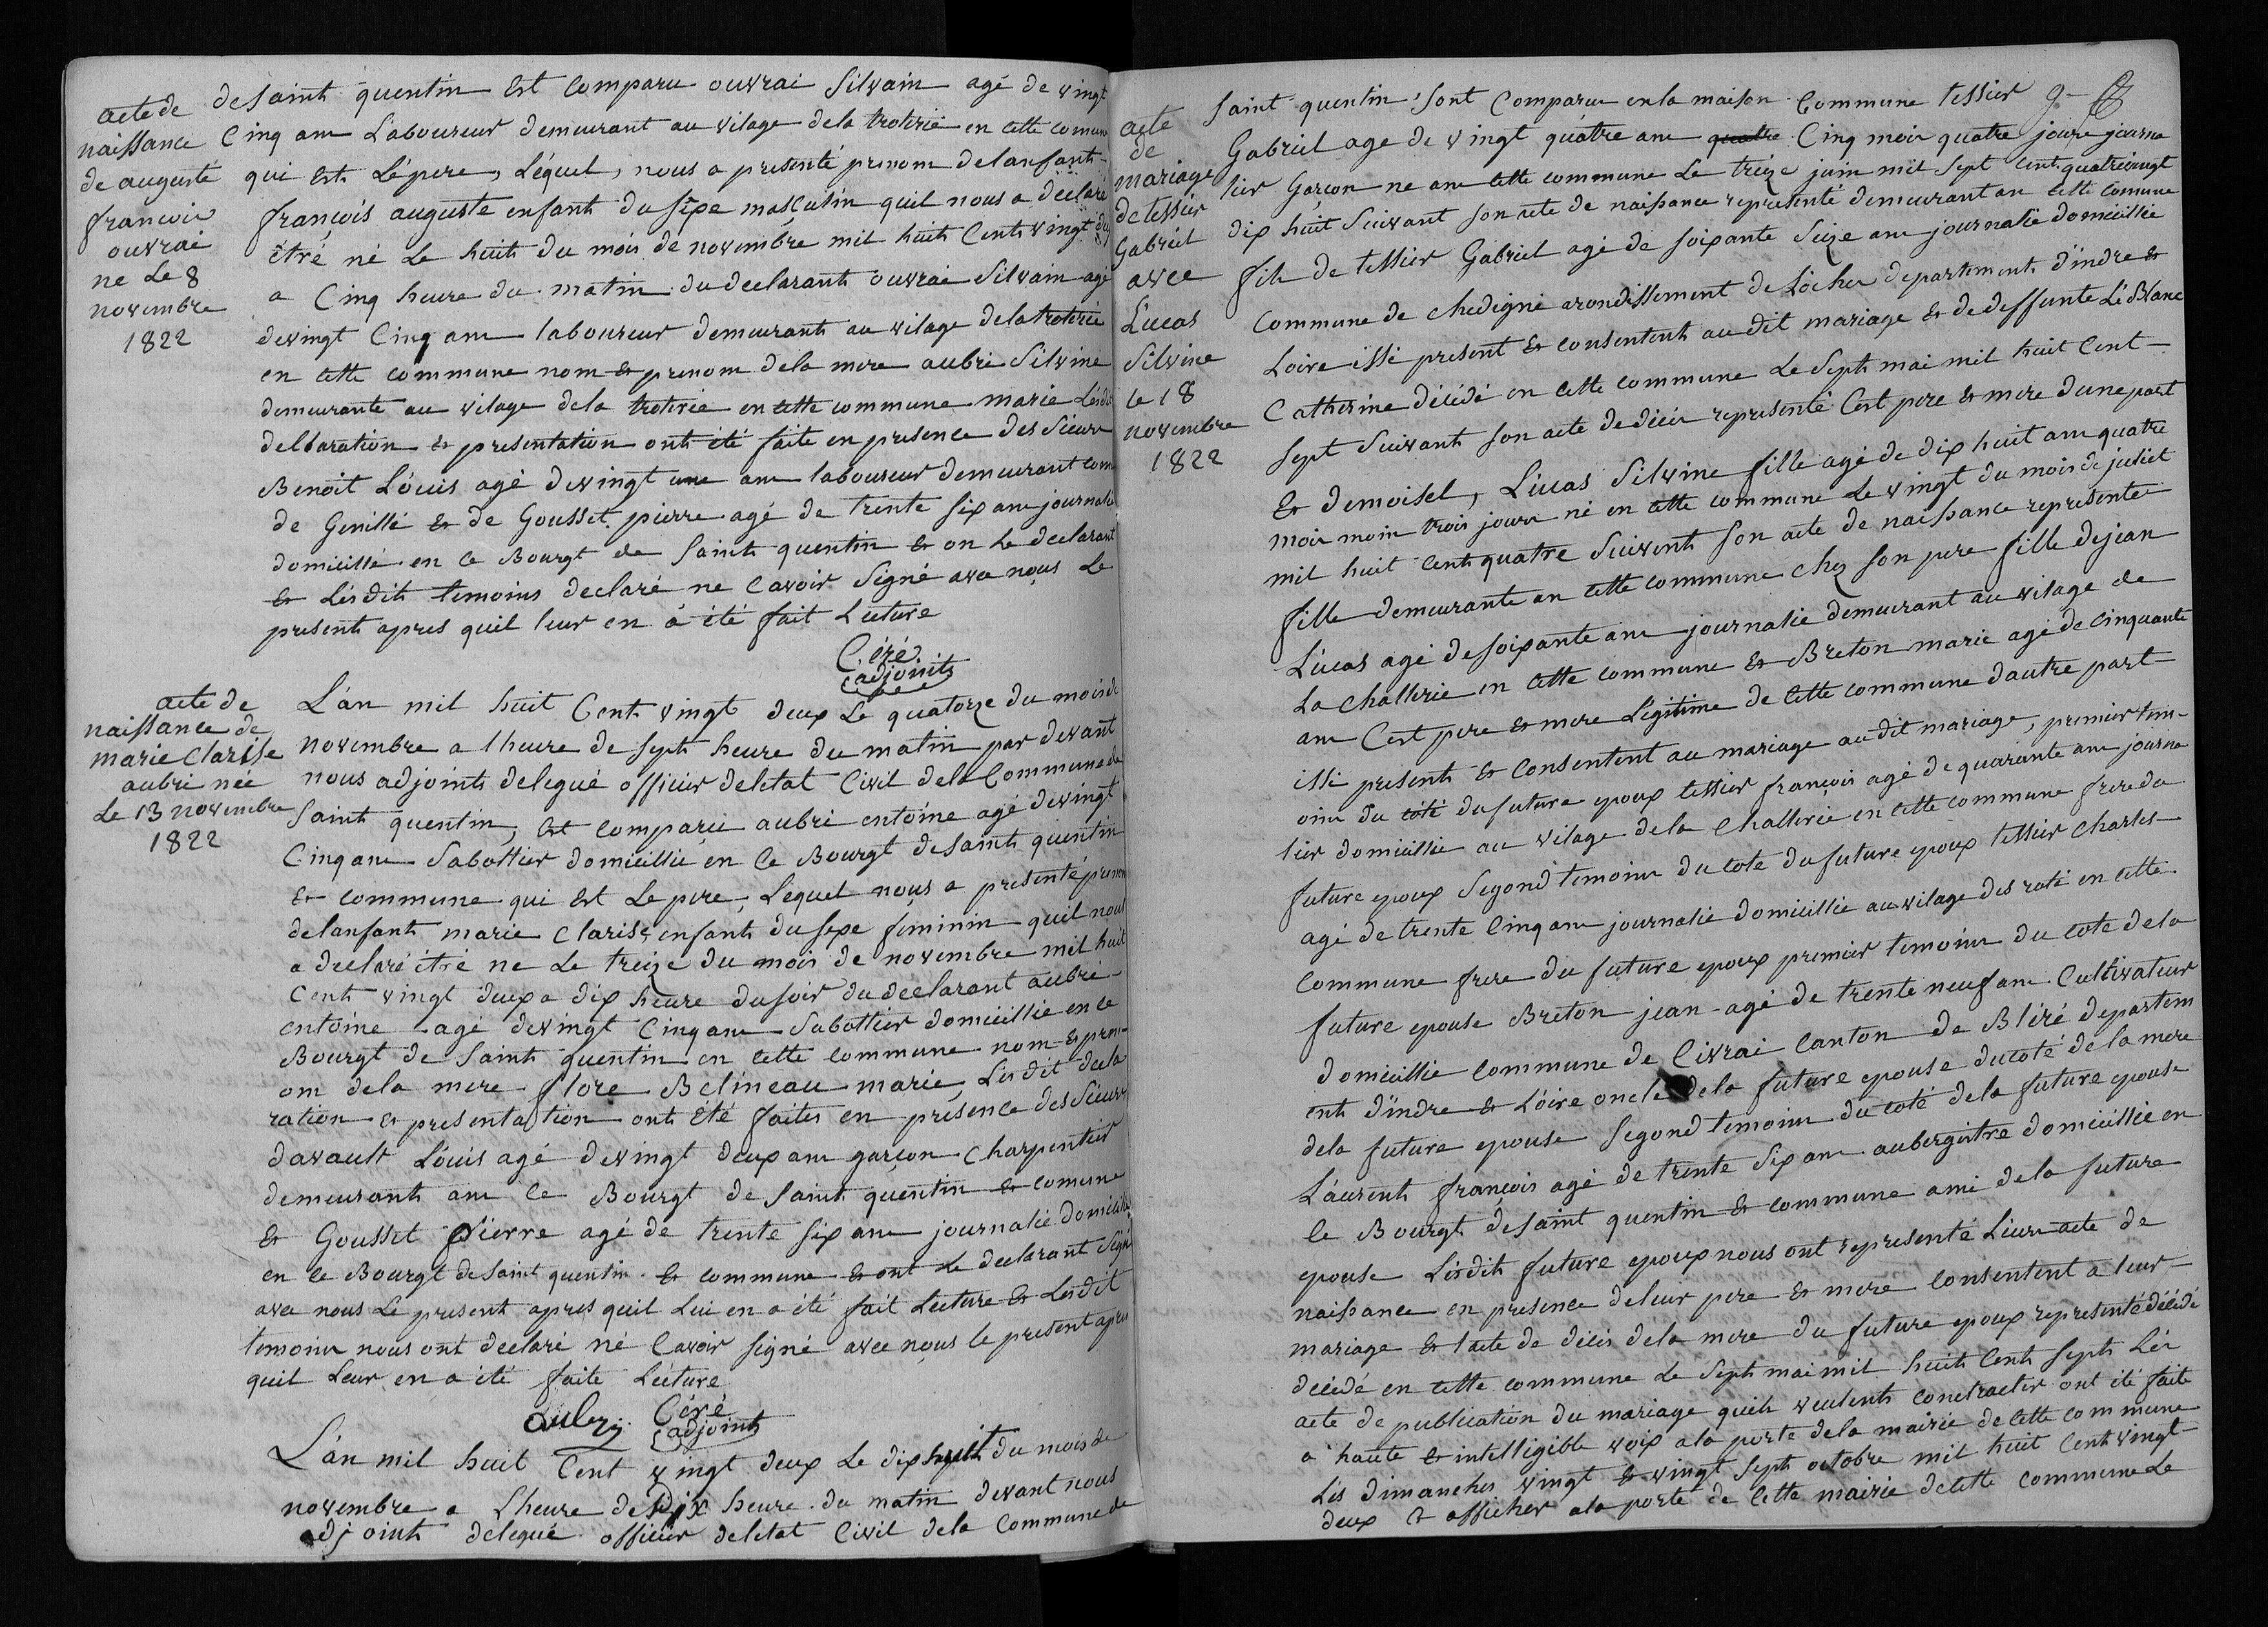 acte de
naissance
de auguste
francoir
ouvrai
ne Le 8
novembre
1822
de Saint quentin Est Comparu ouvrai Silvain agé de vingt
Cinq am Laboureur demeurant au vilage dela troterie en cette comune
qui Est Lépere, Léquel, nous a presenté prenom delanfant
françois auguste enfant du sexe masculin quil nous a déclaré
être né Le huit du mois de novembre mil huit Cent vingt deux
a Cinq heure du matin du declarant ouvrai Silvain agé
devingt Cinq am laboureur demeurant au vilage dela troterie
en cette commune nom & prenom dela mere aubri Silvine
demeurante au vilage dela troterie en cette commune marié Lesdit
delbaration & presentation ont été faite en presence des Sieurs
Benoit Louis agé devingt une am laboureur demeurant com
de Genillé & de Gousset pierre agé de trente six am journalié
domicillié en ce Bourgt de Saint quentin & on Le declarant
& Lésdit temoins declaré ne Cavoir Signé avec nous Le
present apres quil leur en à été fait Lecture
Céré
adjoint
acte de
naissance de
marie Clarisse
aubri née
Le 13 novembre
1822
L'an mil huit Cent vingt deux Le quatorze du mois de
novembre a lheure de sept heure du matin par devant
nous adjoint delegué officier deletat Civil dela Commune de
Saint quentin, Est comparu aubri entoine agé devingt
Cinq am Sabottier domicillié en ce Bourgt de Saint quentin
& commune qui Est Le pere, Lequel nous a presenté prenom
delanfant marie Clarise enfant du sexe feminin quil nous
a declaré être ne Le treize du mois de novembre mil huit
Cent vingt deux a dix heure du soir du declarant aubri
entoine agé devingt Cinq am Sabottier domicillié en ce
Bourgt de Saint quentin en cette commune nom & pren-
om dela mere flore Belineau marié, Lesdit decla
ration & presentation ont été faites en presence des Sieurs
davault Louis agé devingt deux am garçon Charpentier
demeurant am ce Bourgt de Saint quentin & comune
& Gousset Pierre agé de trente six am journalié domicillié
en ce Bourgt de Saint quentin & commune & ont Le declarant Signé
avec nous Le present apres quil Lui en a été fait Lecture & Lesdit
temoins nous ont declaré né Cavoir signé avec nous le present apres
quil Leur en a été faite Lecture
aubri Céré
adjoint
L'an mil huit Cent vingt deux Le dix huit du mois de
novembre a Lheure de Dix heure du matin devant nous
adjoint delegué officier deletat Civil dela Commune de
acte
de
mariage
de tessier
Gabriel
avec
Lucas
Silvine
le 18
novembre
1822
Saint quentin Sont Comparu en la maison Commune tessier 9-
Gabriel age de vingt quatre am quatre Cinq moir quatre jours journa
lier Garçon ne am cette commune Le treize juin mil Sept Cent quatrevingt
dix huit Suivant Son acte de naissance representé demeurant an cette comune
fils de tessier Gabriel agé de soixante Seize am journalié domicillié
Commune de chedigné arondissement de Loches departement d'indre &
Loire issi present & consentent au dit mariage & de deffunte Lé Blanc
Catherine décédé en cette commune Le Sept mai mil huit Cent
Sept Suivant Son acte de décés representé Cest pere & mere dune part
& demoisel, Lucas Silvine fille agé de dix huit am quatre
moir moin trois jours né en cette commune Le vingt du mois de juliet
mil huit Cent quatre Suivent Son acte de naissance representé
fille demeurante an cette commune chez Son pere fille de jean
Lucas agé de soixante am journalié demeurant au vilage de
La challerie en cette commune & Breton marie agé de cinquante
am Cest pere & mere Légitime de cette commune dautre part
issi present & Consentent au mariage audit mariage, premier tem-
oins du côté du future epoux tessier françois agé de quarante am journa
lier domicillié au vilage dela Challerie en cette commune frere du
future epoux Segond temoins du coté du future epoux tessier Charles
agé de trente Cinq am journalié domicillié au vilage des raté en cette
Commune frere du future epoux premier temoins du coté dela
future epouse Breton jean agé de trente neuf am Cultivateur
domicillié Commune de Civrai Canton de Bléré departem
ent d'indre & Loire oncle dela future epouse du coté dela mere
dela future epouse Segond temoins du coté dela future epouse
Laurent françois agé de trente Six am aubergistre domicillié en
le Bourgt de Saint quentin & commune ami dela future
epouse Lésdit future epoux nous ont representé Leurs acte de
naissance en presence deleur pere & mere Consentent a leur
mariage & lacte de décés dela mere du future epoux representé décédé
décédé en cette commune Le Sept mai mil huit Cent Sept Lés
acte de publication du mariage quils veulent conctracter ont été faite
a haute & intelligible voix ala porte dela mairie de cette commune
Les dimanches vingt & vingt Sept octobre mil huit Cent vingt
deux & afficher ala porte de cette mairie de cette commune Le